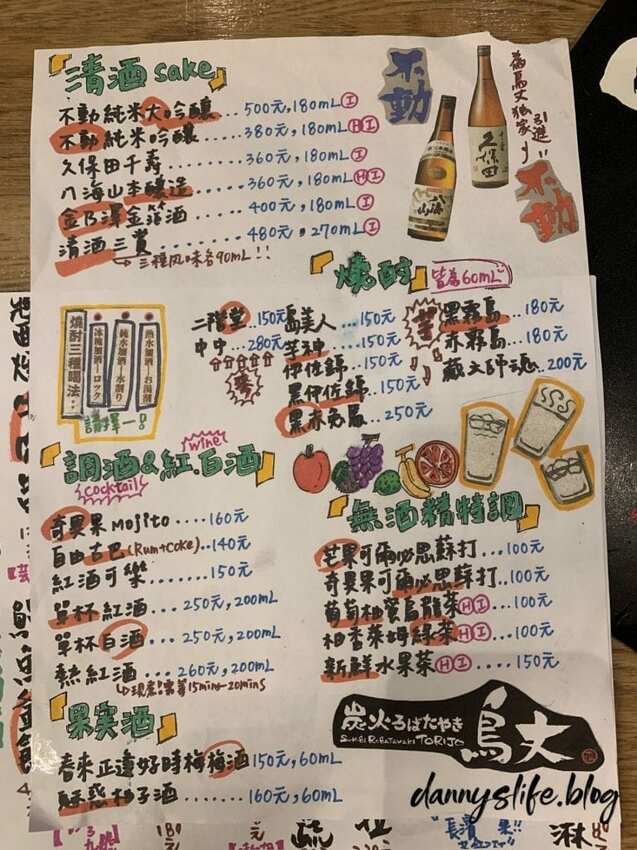 『清酒 sake』
不動純米大吟釀...500元,180ml Ⓘ
不動純米吟釀...380元,180ml ⒽⒾ
久保田千壽......360元,180ml Ⓘ
八海山本釀造...360元,180ml ⒽⒾ
金乃澤金箔酒...400元,180ml Ⓘ
清酒三賞......480元,270ml Ⓘ
三種风味各90ml!!
為鳥丈独家引進!!
不動
不動
久保田
八海山
『燒酎』
皆為60ml
燒酎三種喝法..
冰塊加酒ーロック
純水加酒ー水割り
熱水加酒ーお湯割
請擇一!
二階堂..150元
中中...280元
麥
島美人...150元
芋神....150元
伊佐錦...150元
黑伊佐錦..150元
黑赤兔馬..250元
芋
黑霧島...180元
赤霧島...180元
藏大師魂..200元
『調酒&紅.白酒』
wine
cocktail
奇異果Mojito....160元
自由古巴(Rum+Coke)..140元
紅酒可樂......150元
單杯紅酒...250元,200ml
單杯白酒...250元,200ml
熱紅酒...260元,200ml
15mins-20mins
『無酒精特調』
芒果可爾必思蘇打...100元
奇異果可爾必思蘇打..100元
葡萄柚蜜烏龍茶ⒽⒾ...100元
柚香萊姆綠茶ⒽⒾ...100元
新鮮水果茶ⒽⒾ....150元
『果実酒』
春來正逢好時梅梅酒150元,60ml
魅惑柚子酒......160元,60ml
炭火ろばたやき
SUMIBI ROBATAYAKI TORIJO
鳥丈
dannyslife.blog